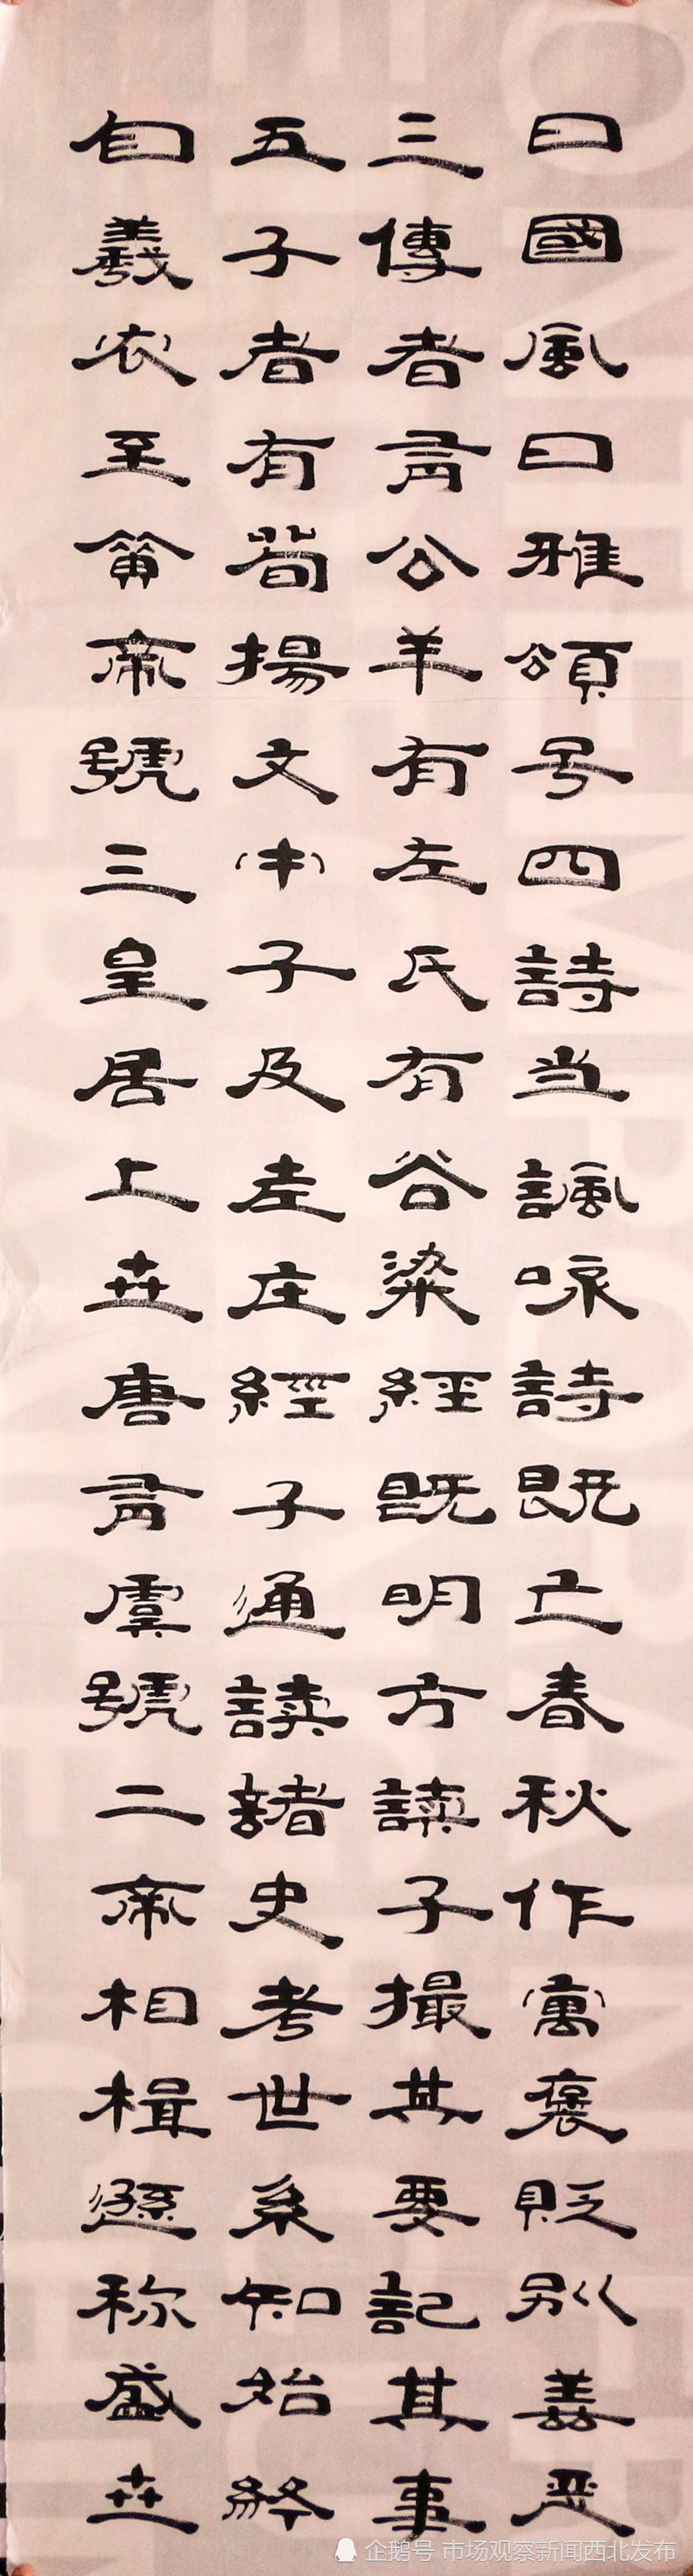 曰國風曰雅頌号四詩当諷咏詩既亡春秋作寓褒貶别善恶
三傳者有公羊有左氏有谷梁經既明方讀子撮其要記其事
五子者有荀揚文中子及老庄經子通讀諸史考世系知始終
自羲农至黄帝號三皇居上世唐有虞號二帝相揖遜称盛世
企鹅号 市场观察新闻西北发布